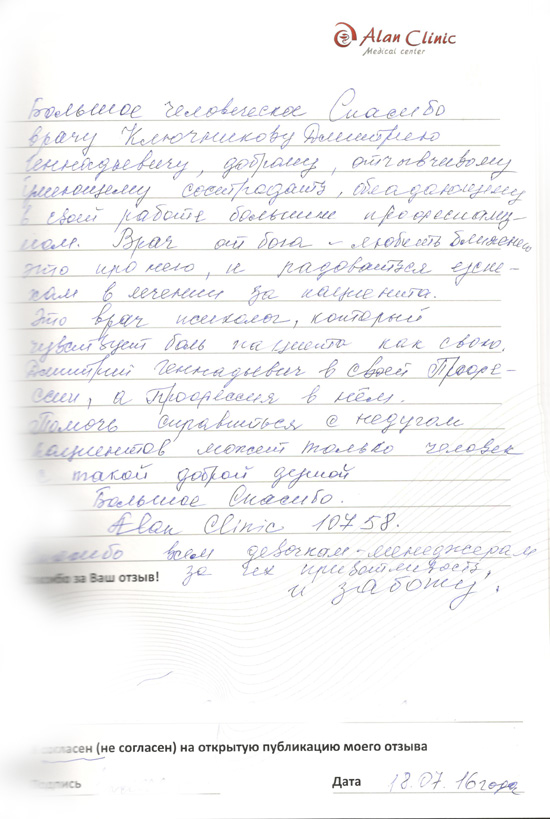 Alan Clinic
Medical center
Большое человеческое Спасибо
врачу Ключникову Дмитрию
Геннадьевичу, доброму, отзывчивому
умеющему сострадать, обладающему
в своей работе большим профессиона-
мом. Врач от бога - любить ближнего
это про него, и радоваться успе-
хам в лечении за пациента.
Это врач психолог, который
чувствует боль пациента как свою.
Дмитрий Геннадьевич в своей Профе-
ссии, а Профессия в нём.
Помочь справиться с недугом
пациентов может только человек
с такой доброй душой
Большое Спасибо.
Alan Clinic 10758.
Спасибо всем девочкам-менеджерам
за их приветливость,
и заботу.
Спасибо за Ваш отзыв!
согласен (не согласен) на открытую публикацию моего отзыва
Подпись
Дата 18.07.16 года